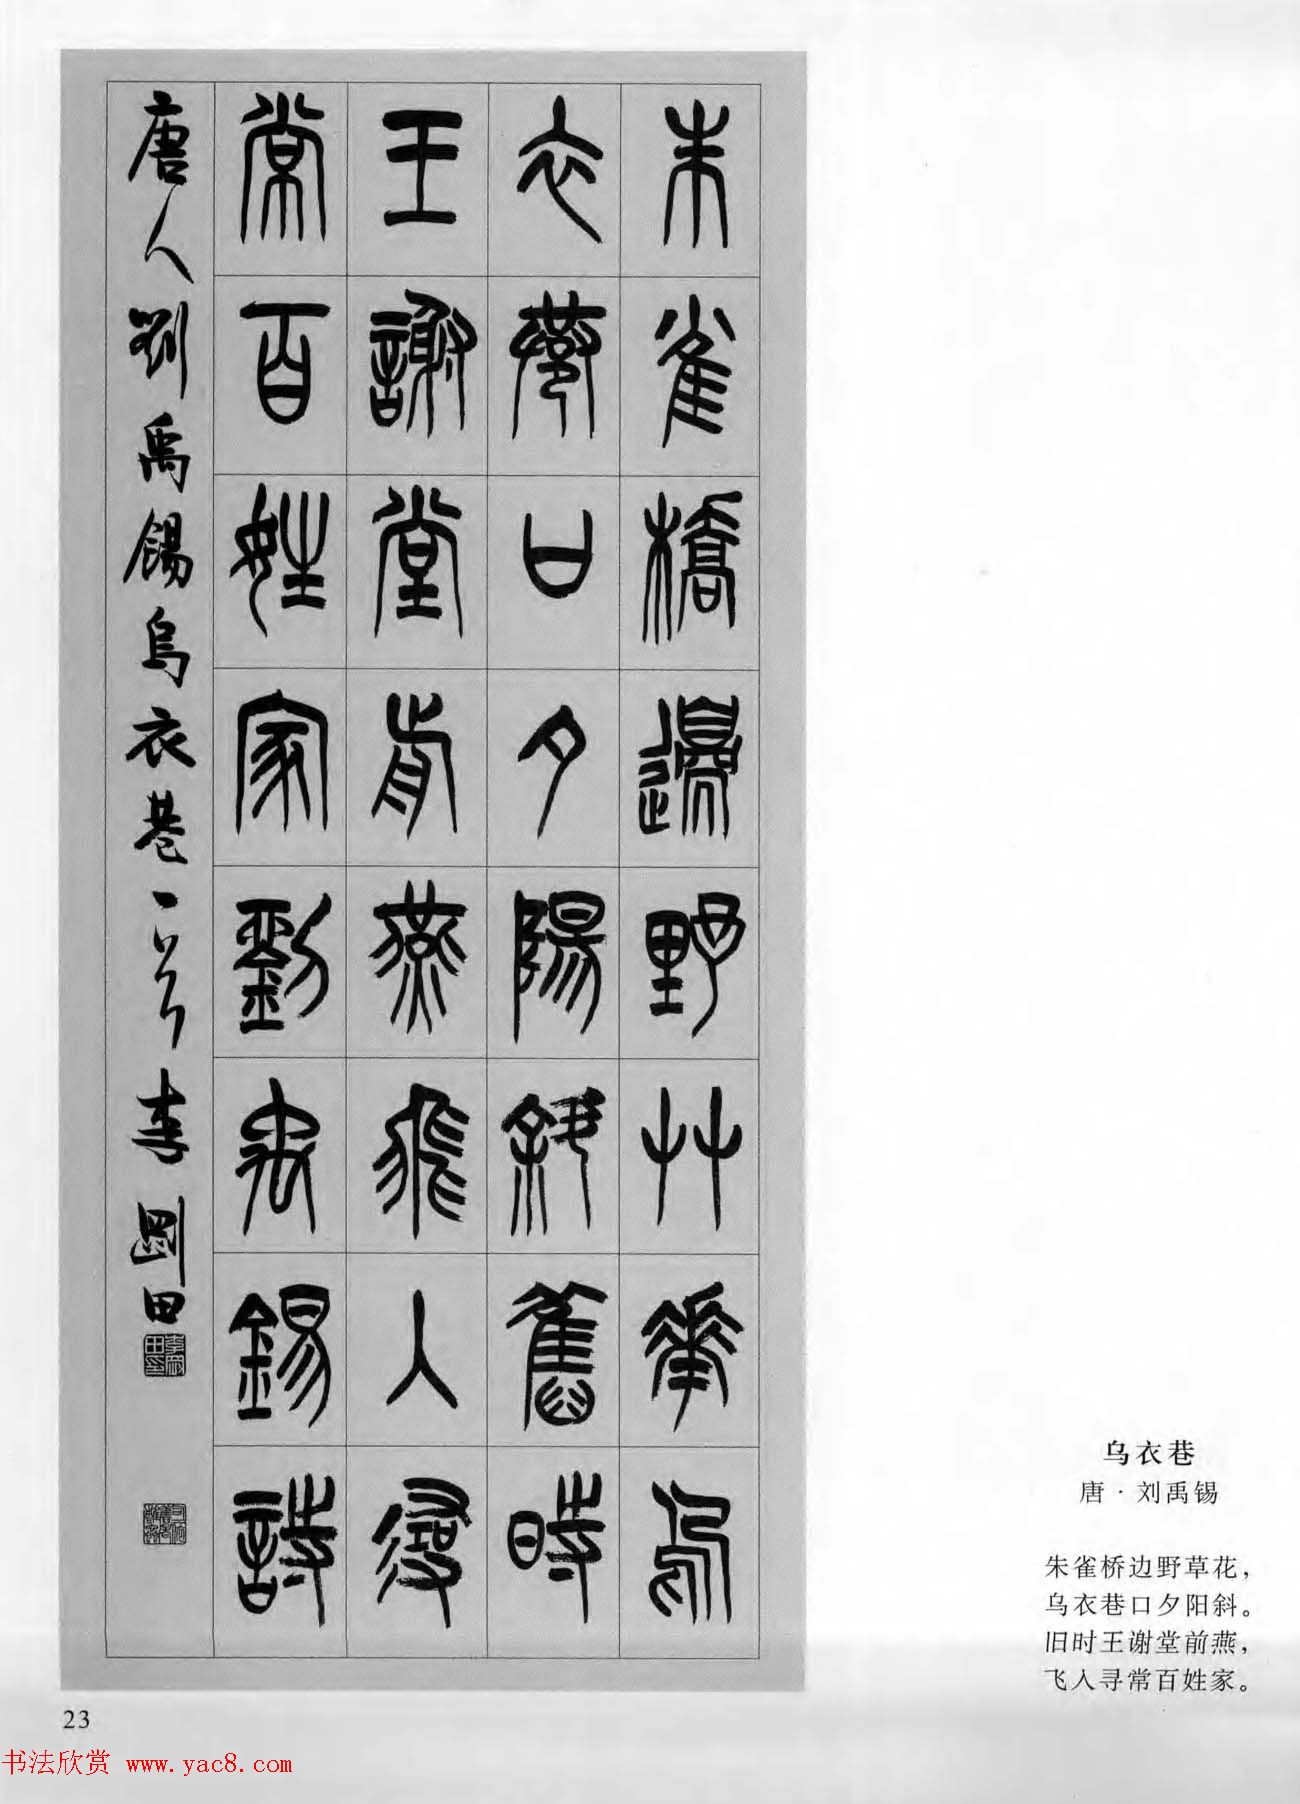 朱雀橋邊野艸華烏
衣巷口夕陽斜舊時
王謝堂肯燕飛人尋
常百姓家劉禹錫詩
唐人劉禹錫烏衣巷一首 李剛田
乌衣巷
唐·刘禹锡
朱雀桥边野草花，
乌衣巷口夕阳斜。
旧时王谢堂前燕，
飞人寻常百姓家。
23
书法欣赏 www.yac8.com